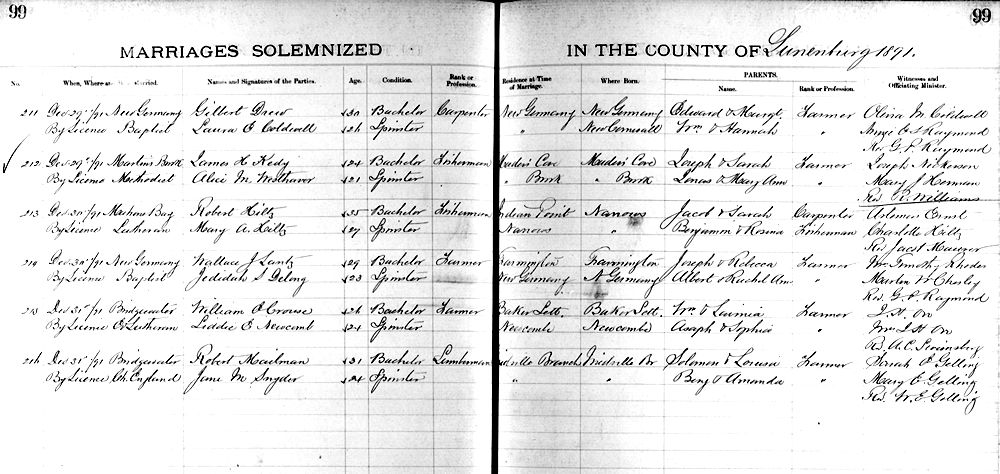 99
99
MARRIAGES SOLEMNIZED IN THE COUNTY OF Lunenburg 1891.
No. When, Where Married. Names and Signatures of the Parties. Age. Condition. Rank or Profession. Residence at Time of Marriage. Where Born. PARENTS. Name. Rank or Profession. Witnesses and Officiating Minister.
211 Dec 29" /91 New Germany Gilbert Drew 30 Bachelor Carpenter New Germany New Germany Edward & Farmer Olivia M. Coldwell
By License Baptist Laura E Coldwell 26 Spinster " New Cornwall Wm & Hannah " Raymond
Rev G. P. Raymond
212 Dec 29" /91 Martins Brook James H Kedy 24 Bachelor Fisherman Maders Cove Maders Cove Joseph & Sarah Farmer Joseph Nickerson
By License Methodist Alice M Westhaver 21 Spinster " Brook " Brook & Mary Ann " Mary J Herman
Rev. Williams
213 Dec 30" /91 Mahone Bay Robert Hiltz 35 Bachelor Fisherman Indian Point Narrows Jacob & Sarah Carpenter Artemas Ernst
By License Lutheran Mary A. Hiltz 27 Spinster Narrows " Benjamin & Rosina Fisherman Charlotte Hiltz
Rev Jacob Maurer
214 Dec 30" /91 New Germany Wallace J Lantz 29 Bachelor Farmer Farmington Farmington Joseph & Rebecca Farmer Mr Timothy Rhodes
By License Baptist Jedidah S Delong 23 Spinster New Germany N Germany Albert & Rachel Ann " Martin W Chesley
Rev. G. P. Raymond
215 Dec 31" /91 Bridgewater William O Crouse 26 Bachelor Farmer Baker Sett. Baker Sett. Wm & Farmer
By License E Lutheran Liddie E Newcomb 24 Spinster Newcombe Newcombe Asaph & Sophia "
Rev A.C.
216 Dec 31" /91 Bridgewater Robert Mailman 31 Bachelor Lumberman Branch Solomon & Louisa Farmer Sarah E Gelling
By License Ch. England Jane M Snyder 24 Spinster " " Benj & Amanda " Mary E Gelling
Rev. W. E. Gelling